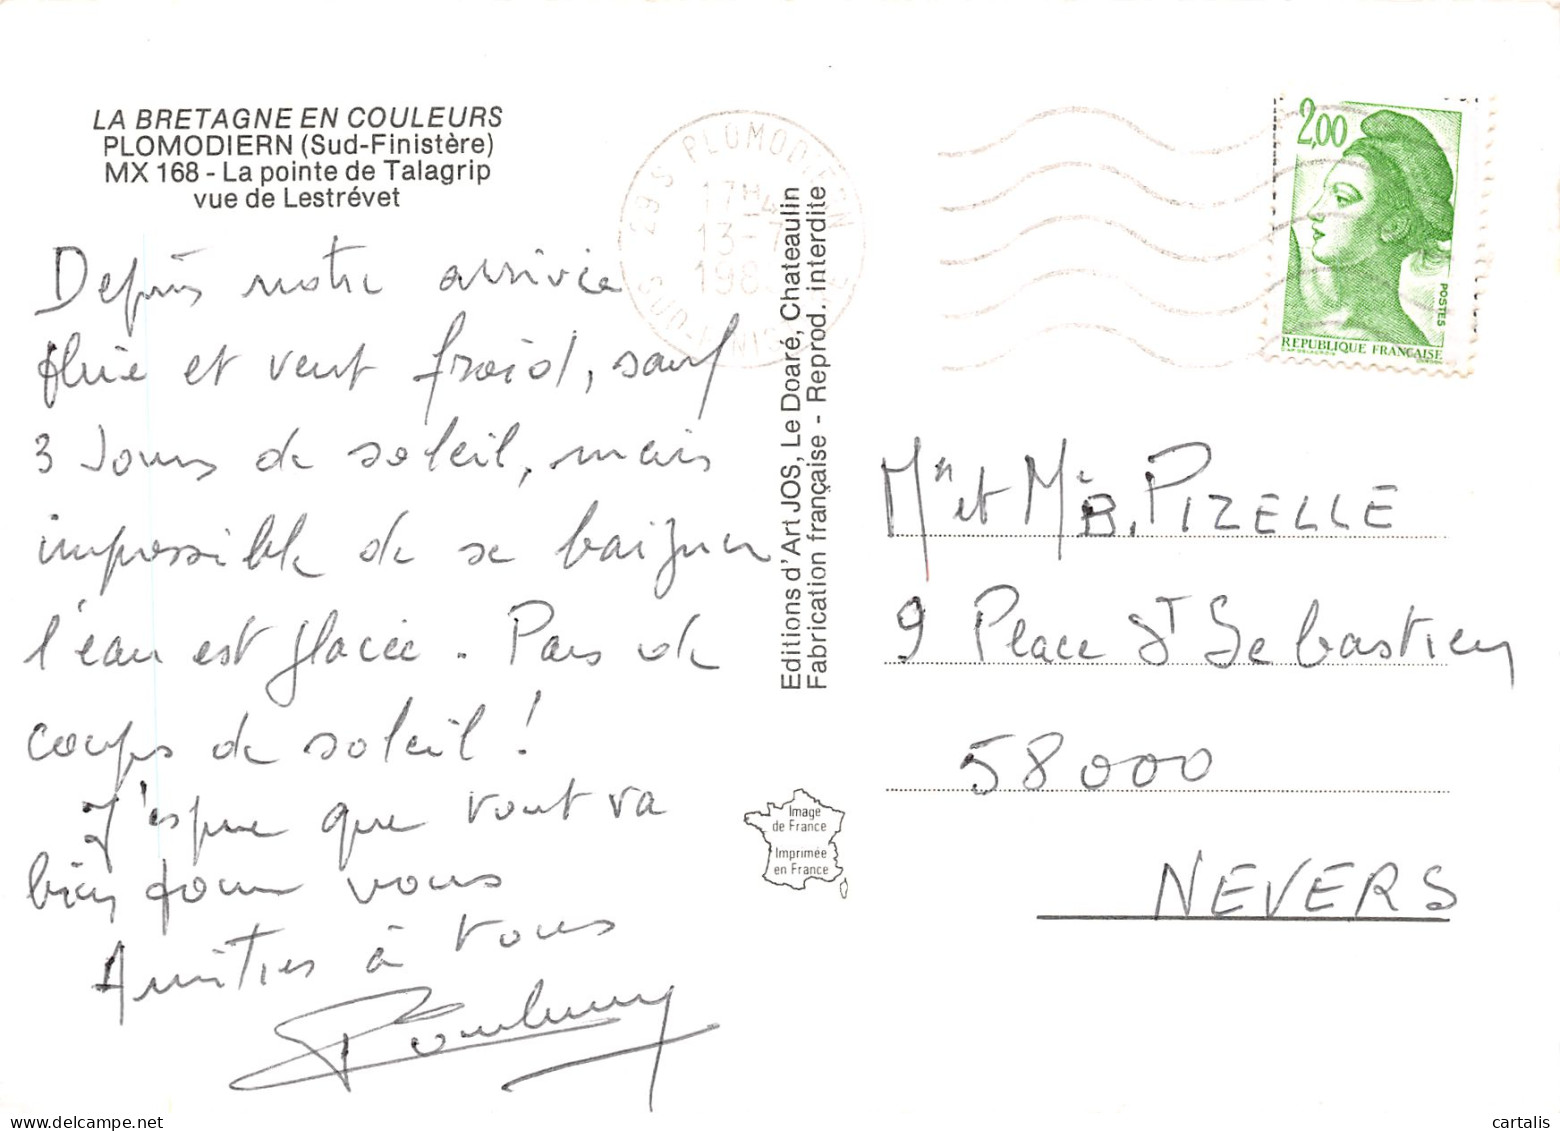 LA BRETAGNE EN COULEURS
PLOMODIERN (Sud-Finistère)
MX 168 - La pointe de Talagrip
vue de Lestrévet
Depuis notre arrivée
pluie et vent froid, sauf
3 Jours de soleil, mais
impossible de se baigner
l'eau est glacée. Pas de
coups de soleil !
J'espère que tout va
bien pour vous
Amitiés à tous
29 S PLOMODIERN
17H4
13-7
198
SUD-FINIST
Editions d'Art JOS, Le Doaré, Chateaulin
Fabrication française - Reprod. interdite
Image
de France
Imprimée
en France
2,00
POSTES
REPUBLIQUE FRANÇAISE
Mr et Me B. PIZELLE
9 Place ST Sebastien
58000
NEVERS
delcampe.net
cartalis